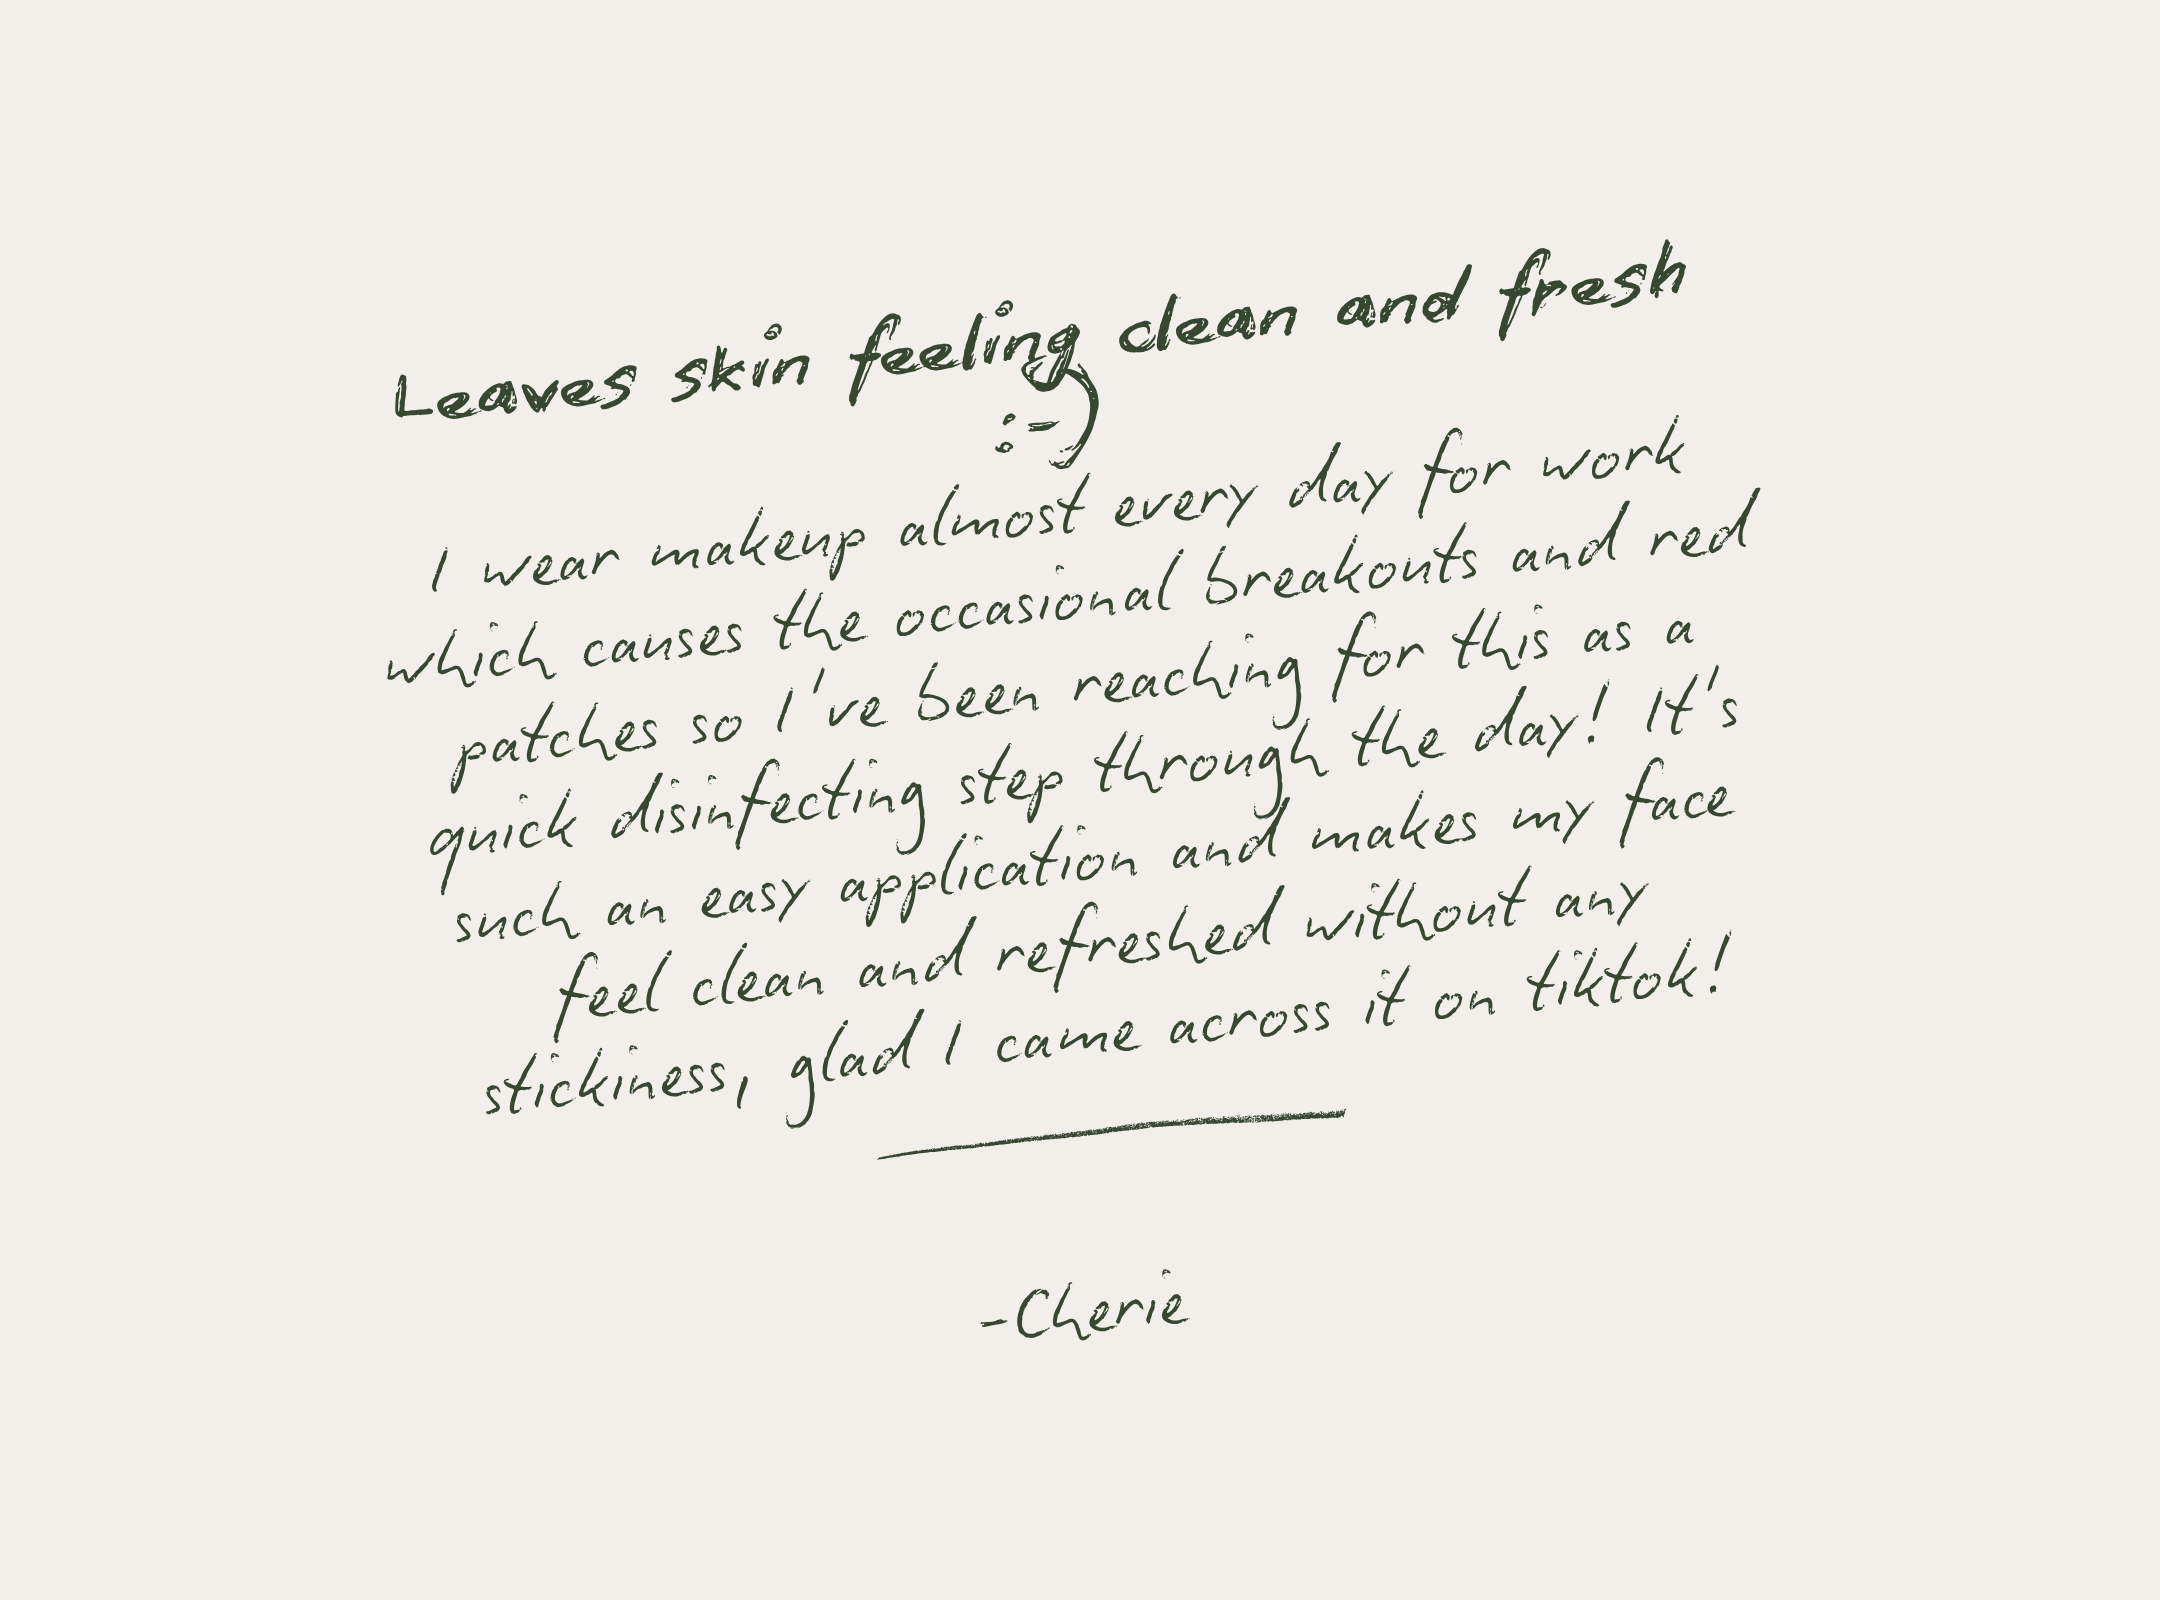 Leaves skin feeling clean and fresh
:-)
I wear makeup almost every day for work
which causes the occasional breakouts and red
patches so I've been reaching for this as a
quick disinfecting step through the day! It's
such an easy application and makes my face
feel clean and refreshed without any
stickiness, glad I came across it on tiktok!
-Cherie